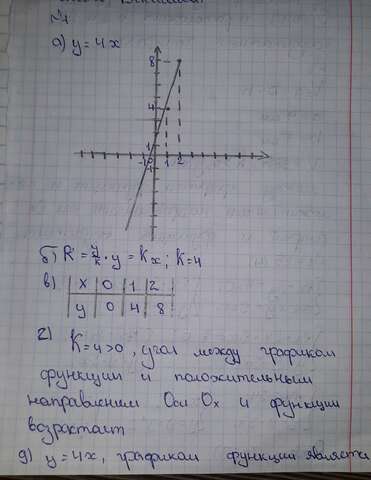 №1
а) y = 4x
8
4
1
-1 0 1 2
-1
б) R = y/x · y = Kx; K=4
в) x 0 1 2
y 0 4 8
г) K=4>0, угол между графиком
функции и положительным
направлением Оси Ox и функции
возрастает
д) y=4x, графиком функции является